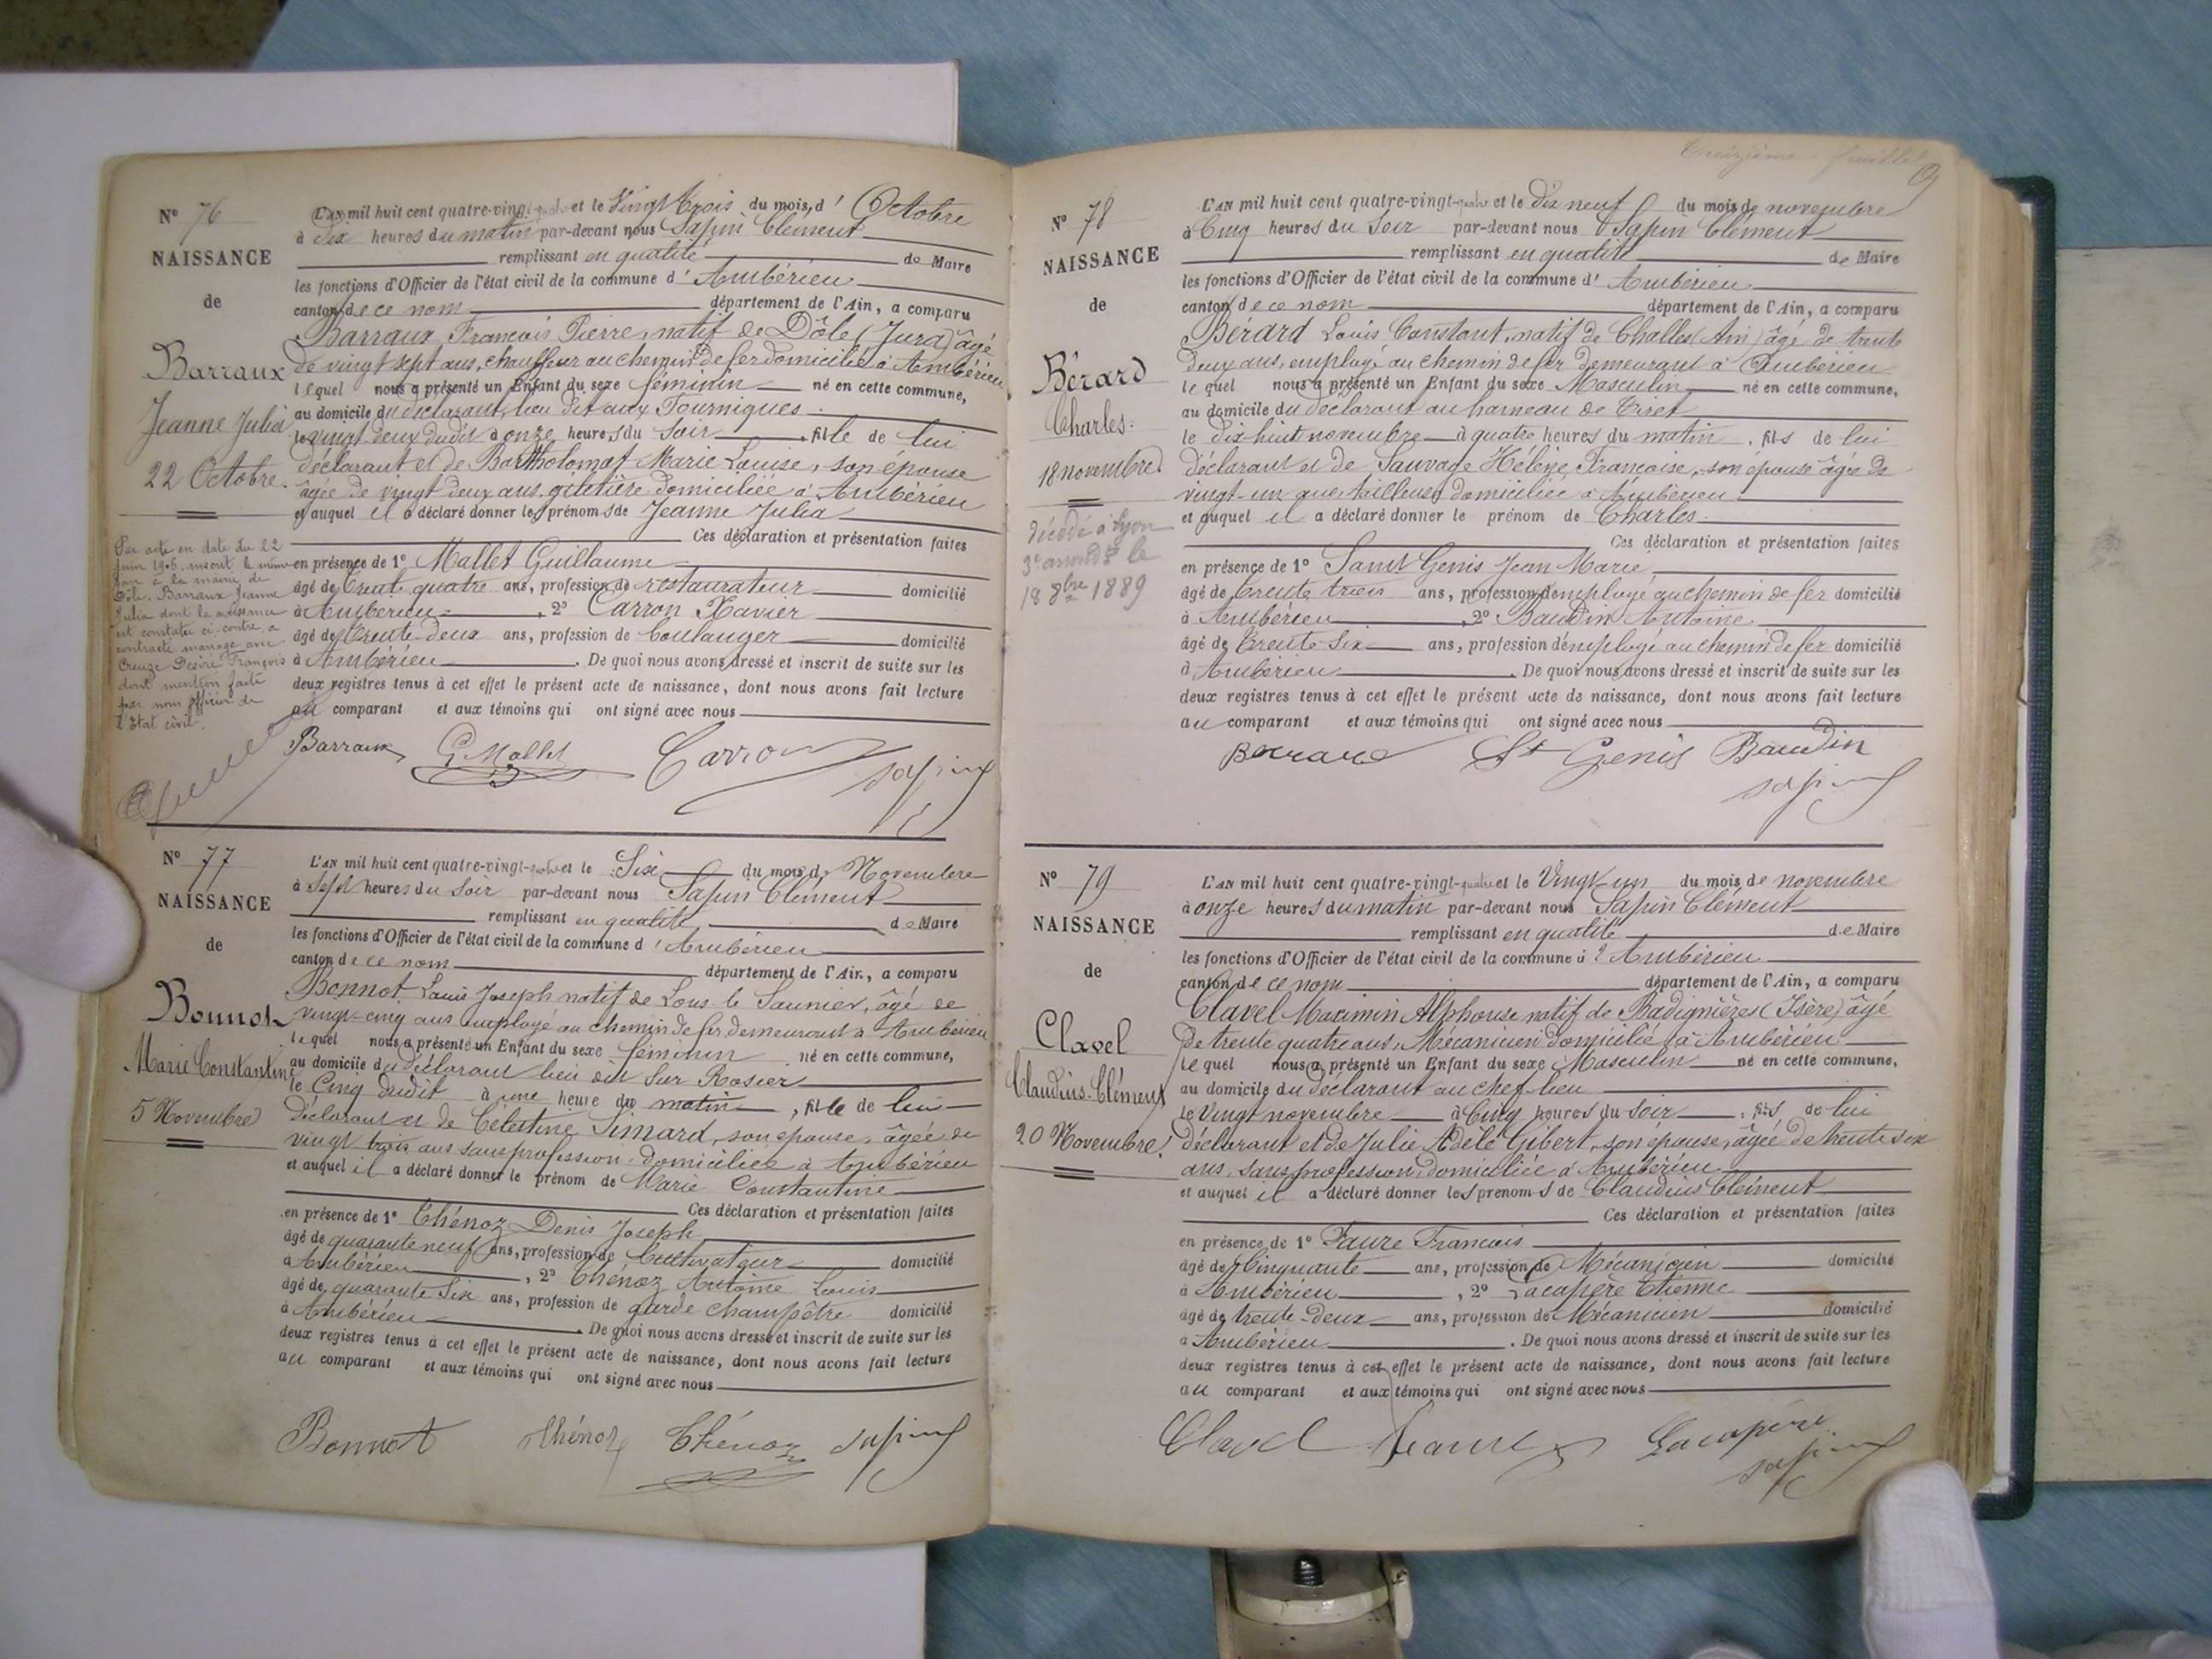 N° 76
NAISSANCE
de
Barraux
Jeanne Julia
22 Octobre.
Par acte en date du 22
juin 1906, inscrit le même
jour à la mairie de
Dôle, Barraux Jeanne
Julia dont la naissance
est constatée ci-contre a
contracté mariage avec
Creuze Désiré François
dont mention faite
par nous officier de
l'Etat civil.
L'AN mil huit cent quatre-vingt-quatre et le Vingt trois du mois d'Octobre
à Dix heures du matin par-devant nous Sapin Clément
remplissant en qualité de Maire
les fonctions d'Officier de l'état civil de la commune d'Ambérieu
canton de ce nom département de l'Ain, a comparu
Barraux François Pierre, natif de Dôle (Jura) âgé
de vingt sept ans, chauffeur au chemin de fer domicilié à Ambérieu
lequel nous a présenté un Enfant du sexe féminin né en cette commune,
au domicile du déclarant, lieu dit aux Fourniques.
le vingt deux dudit à onze heures du soir, fille de lui
déclarant et de Bartholomot Marie Louise, son épouse
âgée de vingt deux ans, giletière domiciliée à Ambérieu
et auquel il a déclaré donner les prénoms de Jeanne Julia
Ces déclaration et présentation faites
en présence de 1° Mallet Guillaume
âgé de trente quatre ans, profession de restaurateur domicilié
à Ambérieu, 2° Carron Xavier
âgé de trente-deux ans, profession de boulanger domicilié
à Ambérieu. De quoi nous avons dressé et inscrit de suite sur les
deux registres tenus à cet effet le présent acte de naissance, dont nous avons fait lecture
au comparant et aux témoins qui ont signé avec nous
Barraux G. Mallet Carron Sapin
N° 77
NAISSANCE
de
Bonnot
Marie Constantine
5 Novembre
L'AN mil huit cent quatre-vingt-quatre et le Six du mois de Novembre
à Sept heures du Soir par-devant nous Sapin Clément
remplissant en qualité de Maire
les fonctions d'Officier de l'état civil de la commune d'Ambérieu
canton de ce nom département de l'Ain, a comparu
Bonnot Louis Joseph natif de Lons-le-Saunier, âgé de
vingt-cinq ans employé au chemin de fer demeurant à Ambérieu
lequel nous a présenté un Enfant du sexe féminin né en cette commune,
au domicile du déclarant lieu dit Sur Rosier
le Cinq dudit à une heure du matin, fille de lui
déclarant et de Célestine Simard, son épouse, âgée de
vingt trois ans sans profession, domiciliée à Ambérieu
et auquel il a déclaré donner le prénom de Marie Constantine
Ces déclaration et présentation faites
en présence de 1° Chénoz Denis Joseph
âgé de quarante neuf ans, profession de Cultivateur domicilié
à Ambérieu, 2° Chénoz Antoine Louis
âgé de quarante Six ans, profession de garde champêtre domicilié
à Ambérieu. De quoi nous avons dressé et inscrit de suite sur les
deux registres tenus à cet effet le présent acte de naissance, dont nous avons fait lecture
au comparant et aux témoins qui ont signé avec nous
Bonnot Chénoz Chénoz Sapin
Treizième feuillet
N° 78
NAISSANCE
de
Bérard
Charles.
18 novembre
Décédé à Lyon
3e arrondt le
18 8bre 1889
L'AN mil huit cent quatre-vingt-quatre et le Dix neuf du mois de novembre
à Cinq heures du Soir par-devant nous Sapin Clément
remplissant en qualité de Maire
les fonctions d'Officier de l'état civil de la commune d'Ambérieu
canton de ce nom département de l'Ain, a comparu
Bérard Louis Constant, natif de Challes (Ain) âgé de trente
deux ans, employé au chemin de fer demeurant à Ambérieu
lequel nous a présenté un Enfant du sexe Masculin né en cette commune,
au domicile du déclarant au hameau de Tiret
le dix huit novembre à quatre heures du matin, fils de lui
déclarant et de Sauvage Hélène Françoise, son épouse âgée de
vingt-un ans, tailleuse domiciliée à Ambérieu
et auquel il a déclaré donner le prénom de Charles.
Ces déclaration et présentation faites
en présence de 1° Saint Genis Jean Marie
âgé de trente trois ans, profession d'employé au chemin de fer domicilié
à Ambérieu, 2° Baudin Antoine
âgé de trente-six ans, profession d'employé au chemin de fer domicilié
à Ambérieu. De quoi nous avons dressé et inscrit de suite sur les
deux registres tenus à cet effet le présent acte de naissance, dont nous avons fait lecture
au comparant et aux témoins qui ont signé avec nous
St Genis Baudin
Sapin
N° 79
NAISSANCE
de
Clavel
Claudius-Clément
20 Novembre
L'AN mil huit cent quatre-vingt-quatre et le Vingt-un du mois de novembre
à onze heures du matin par-devant nous Sapin Clément
remplissant en qualité de Maire
les fonctions d'Officier de l'état civil de la commune d'Ambérieu
canton de ce nom département de l'Ain, a comparu
Clavel Maximin Alphonse natif de Badignières (Isère) âgé
de trente quatre ans, Mécanicien domicilié à Ambérieu
lequel nous a présenté un Enfant du sexe Masculin né en cette commune,
au domicile du déclarant au chef-lieu
le Vingt novembre à Cinq heures du soir, fils de lui
déclarant et de Julie Adèle Gibert, son épouse, âgée de trente six
ans, sans profession, domiciliée à Ambérieu
et auquel il a déclaré donner les prénoms de Claudius Clément
Ces déclaration et présentation faites
en présence de 1° Faure François
âgé de Cinquante ans, profession de Mécanicien domicilié
à Ambérieu, 2° Lacapère Etienne
âgé de trente-deux ans, profession de Mécanicien domicilié
à Ambérieu. De quoi nous avons dressé et inscrit de suite sur les
deux registres tenus à cet effet le présent acte de naissance, dont nous avons fait lecture
au comparant et aux témoins qui ont signé avec nous
Clavel Faure Lacapère
Sapin